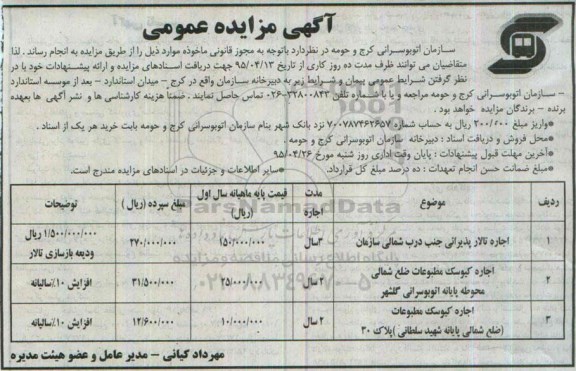 آگهی مزایده عمومی
سازمان اتوبوسرانی کرج و حومه در نظردارد باتوجه به مجوز قانونی ماخوذه موارد ذیل را از طریق مزایده به انجام رساند . لذا
متقاضیان می توانند ظرف مدت ده روز کاری از تاریخ ۹۵/۰۴/۱۳ جهت دریافت اسنادهای مزایده و ارائه پیشنهادات خود با در
نظر گرفتن شرایط عمومی پیمان و شرایط زیر به دبیرخانه سازمان واقع در کرج – میدان استاندارد – بعد از موسسه استاندارد
– سازمان اتوبوسرانی کرج و حومه مراجعه و یا با شماره تلفن ۳۲۸۰۰۸۴۳-۰۲۶ تماس حاصل نمایند . ضمنا هزینه کارشناسی ها و نشر آگهی ها بعهده
برنده – برندگان مزایده خواهد بود .
*واریز مبلغ ۳۰۰/۶۰۰ ریال به حساب شماره ۷۰۰۷۸۷۴۶۲۶۵۷ نزد بانک شهر بنام سازمان اتوبوسرانی کرج و حومه بابت خرید هر یک از اسناد .
*محل فروش و دریافت اسناد : دبیرخانه سازمان اتوبوسرانی کرج و حومه .
*آخرین مهلت قبول پیشنهادات : پایان وقت اداری روز شنبه مورخ ۹۵/۰۴/۲۶
*مبلغ ضمانت حسن انجام تعهدات : ده درصد مبلغ کل قرارداد. *سایر اطلاعات و جزئیات در اسنادهای مزایده مندرج است.
ردیف موضوع مدت اجاره قیمت پایه ماهیانه سال اول (ریال) مبلغ سپرده (ریال) توضیحات
۱ اجاره تالار پذیرائی جنب درب شمالی سازمان ۳سال ۱۵۰/۰۰۰/۰۰۰ ۲۷۰/۰۰۰/۰۰۰ ۱/۵۰۰/۰۰۰/۰۰۰ ریال ودیعه بازسازی تالار
۲ اجاره کیوسک مطبوعات ضلع شمالی محوطه پایانه اتوبوسرانی گلشهر ۲ سال ۲۵/۰۰۰/۰۰۰ ۳۱/۵۰۰/۰۰۰ افزایش ۱۰٪سالیانه
۳ اجاره کیوسک مطبوعات (ضلع شمالی پایانه شهید سلطانی )پلاک ۳۰ ۲ سال ۱۰/۰۰۰/۰۰۰ ۱۲/۶۰۰/۰۰۰ افزایش ۱۰٪سالیانه
مهرداد کیانی – مدیر عامل و عضو هیئت مدیره
ParsNamadData